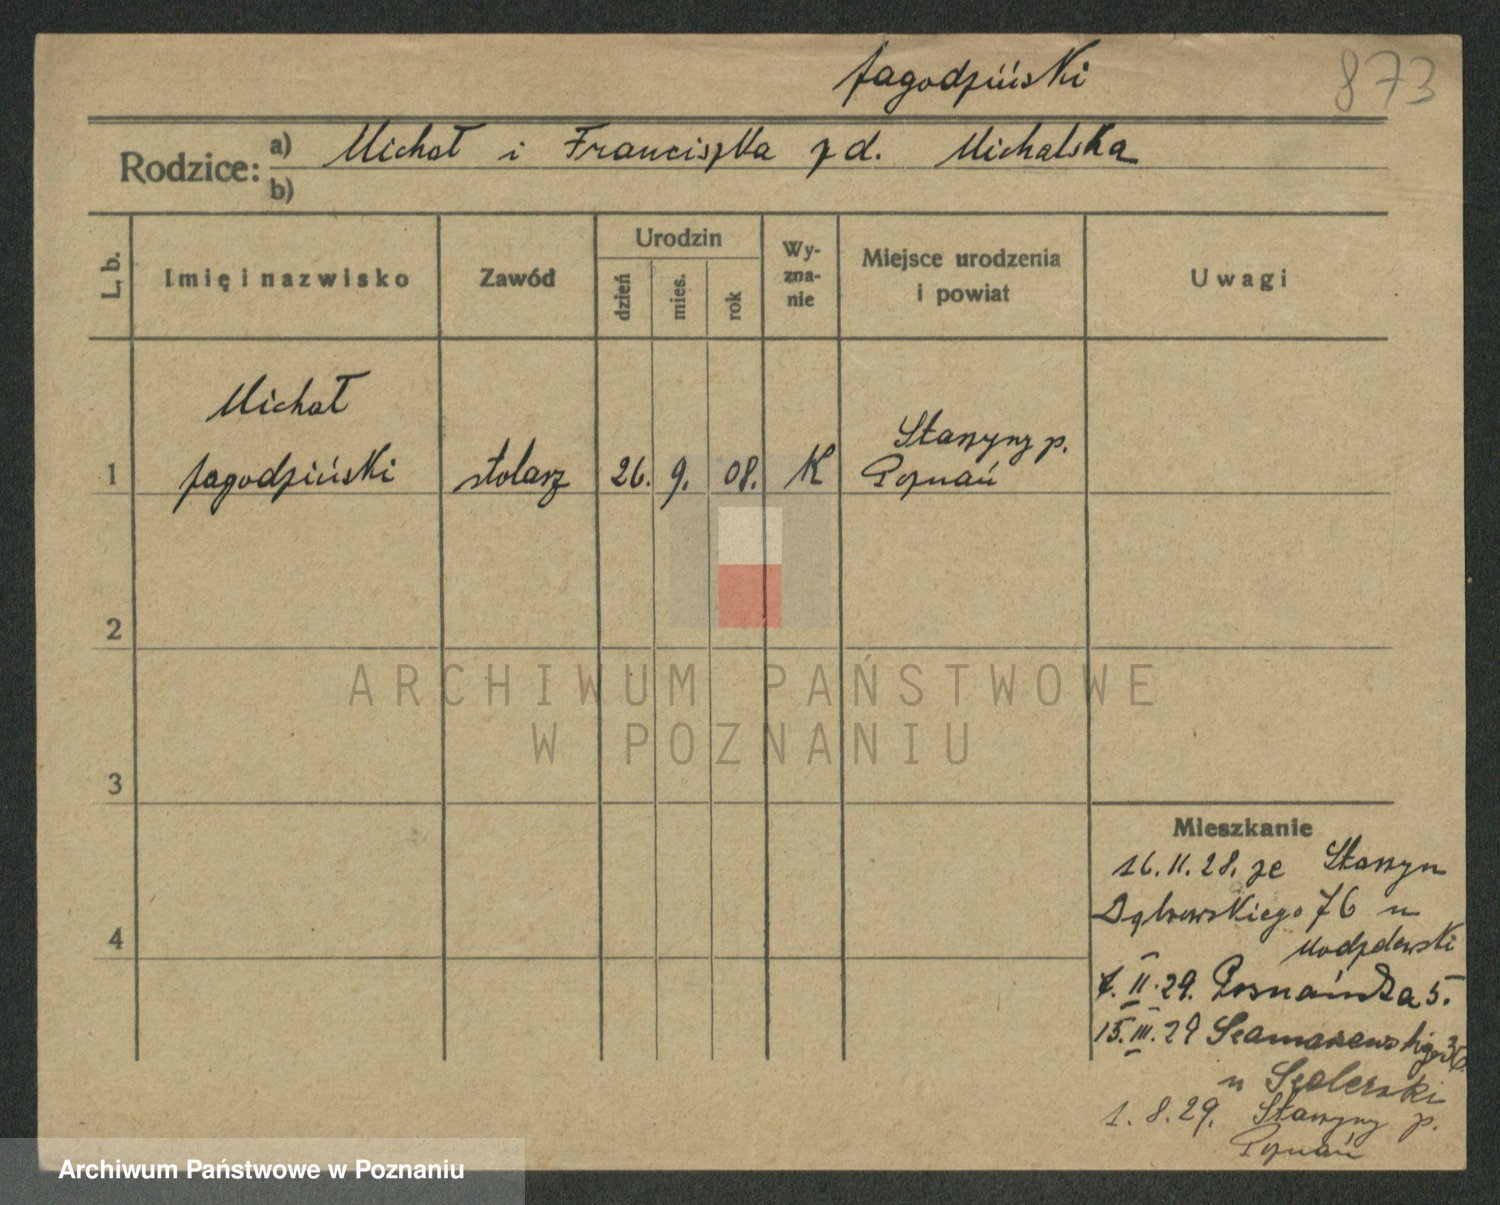 Jagodziński
873
Rodzice: a) Michał i Franciszka z d. Michalska
b)
L. b.
Imię i nazwisko
Zawód
Urodzin
dzień
mies.
rok
Wy-
zna-
nie
Miejsce urodzenia
i powiat
Uwagi
Michał
1 Jagodziński stolarz 26. 9. 08. K
Staszyny p.
Poznań
2
3
4
Mieszkanie
16. 11. 28. ze
Dąbrowskiego 76 u
7. II. 29. Poznańska 5.
15. III. 29 Szamarzewskiego 36
u
1. 8. 29. p.
Poznań
ARCHIWUM PAŃSTWOWE
W POZNANIU
Archiwum Państwowe w Poznaniu